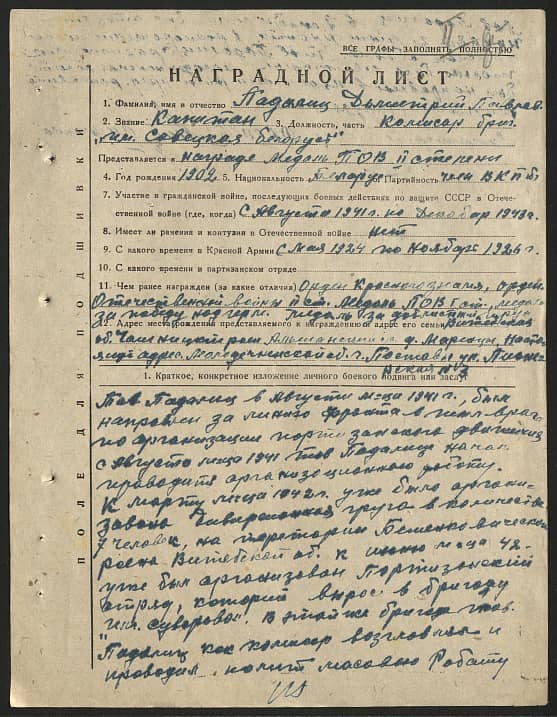 ВСЕ ГРАФЫ ЗАПОЛНЯТЬ ПОЛНОСТЬЮ
НАГРАДНОЙ ЛИСТ
1. Фамилия, имя и отчество Падалиц Дымитрий
2. Звание Капитан 3. Должность, часть Комисар бриг.
"им. Совецкая Беларусь"
Представляется к награде Медоль ПОВ II степени
4. Год рождения 1902 5. Национальность Беларус Партийность член ВКПб
7. Участие в гражданской войне, последующих боевых действиях по защите СССР в Отече-
ственной войне (где, когда) С Августа 1941 г. по Декабар 1943 г.
8. Имеет ли ранения и контузии в Отечественной войне нет
9. С какого времени в Красной Армии С мая 1924 по Ноябарь 1926 г.
10. С какого времени в партизанском отряде
11. Чем ранее награжден (за какие отличия) Орден Красного знамя, орден
Отечественной войны II ст. Медоль ПОВ I ст., медоль
за победу над герм. медоль за
12. Адрес места рождения представляемого к награждению и адрес его семьи Витебская
об. Чашницкий роен д. Марсаци, Насто-
ящий адрес. Маладеченской об. г. Постави ул. Пионе-
рская №3
1. Краткое, конкретное изложение личного боевого подвига или заслуг
Тов Падалиц в Августи м-ца 1941 г., был
направлен за линию фронта в тыл врага
по организации портизанского движения
с Августа м-ца 1941 тов Падалиц начал
проводить организоционною работу.
К марту м-ца 1942 г. уже было органи-
зовона диверсионная група в количестве
7 человек, на територии Бешенковичского
роена Витебской об. к июню м-ца 42-
уже был организован Портизонский
отряд, которий вырос в бригаду
им. Суворова. В этой же бригаде тов.
Падалиц как комисар возглавлял и
проводил полит масовою Работу
ПОЛЕ ДЛЯ ПОДШИВКИ